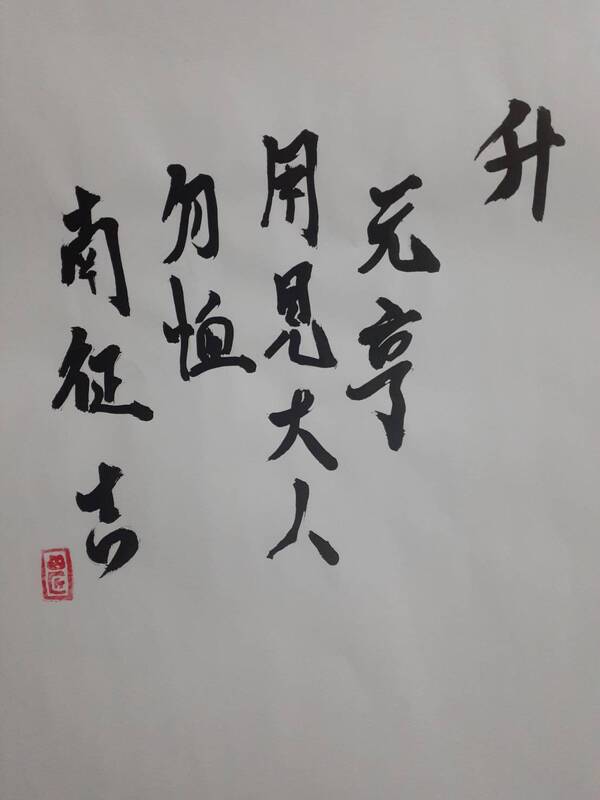 升
元亨
用見大人
勿恤
南征吉